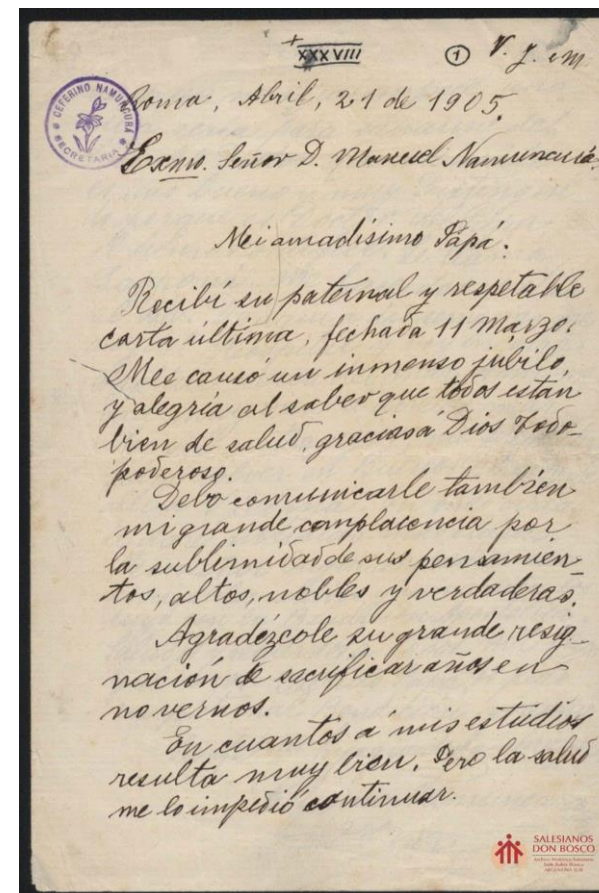 XXXVIII
1 V. J. M.
CEFERINO NAMUNCURÁ
SECRETARIA
Roma, Abril, 21 de 1905.
Exmo. Señor D. Manuel Namuncurá.
Mi amadísimo Papá:
Recibí su paternal y respetable
carta última, fechada 11 Marzo.
Me causó un inmenso júbilo,
y alegría al saber que todos están
bien de salud, gracias á Dios Todo-
poderoso.
Debo comunicarle también
mi grande complacencia por
la sublimidad de sus pensamien
tos, altos, nobles y verdaderas.
Agradézcole su grande resig-
nación de sacrificar años en
no vernos.
En cuantos á mis estudios
resulta muy bien. Pero la salud
me lo impedió continuar.
SALESIANOS
DON BOSCO
ARGENTINA SUR